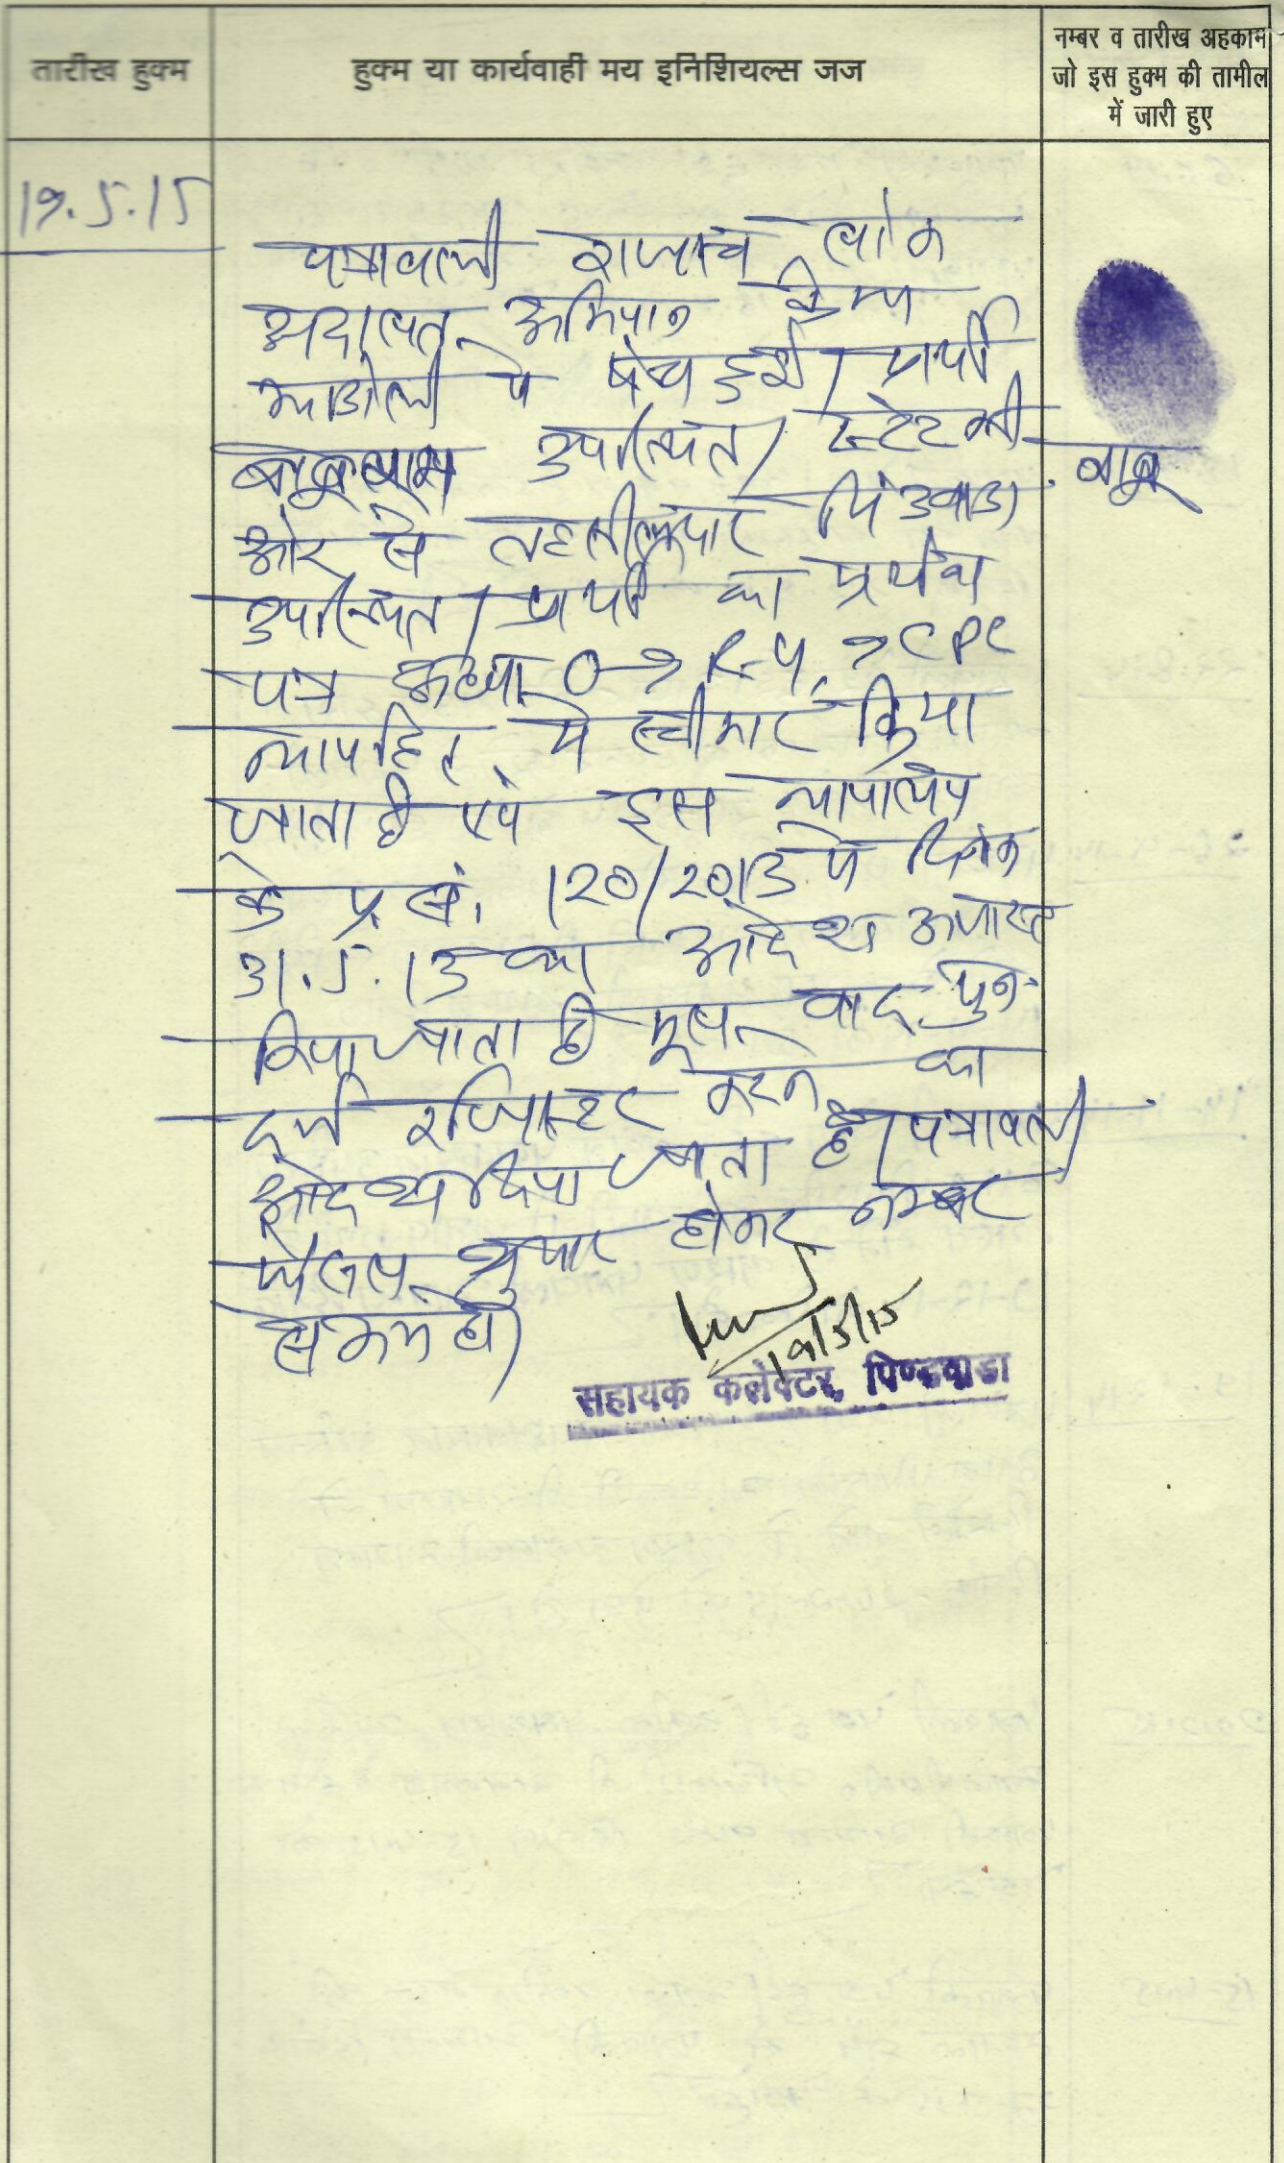 तारीख हुक्म
हुक्म या कार्यवाही मय इनिशियल्स जज
नम्बर व तारीख अहकाम
जो इस हुक्म की तामील
में जारी हुए
19.5.15
पत्रावली राजस्व लोक
अदालत अभियान केम्प
झाडोली मे पेश हुई। प्रार्थी
उपस्थित। स्टेट की
ओर से तहसीलदार पिंडवाडा
उपस्थित। प्रार्थी का प्रार्थना
पत्र R. 9 CPC
न्यायहित मे स्वीकार किया
जाता है एवं इस न्यायालय
के प्र.सं. 120/2013 मे दिनांक
31.5.13 का आदेश अपास्त
किया जाता है मूल वाद पुनः
दर्ज रजिस्टर करने का
आदेश दिया जाता है। पत्रावली
फैसल शुमार होकर नम्बर
से कम हो।
19/5/15
सहायक कलेक्टर, पिण्डवाडा